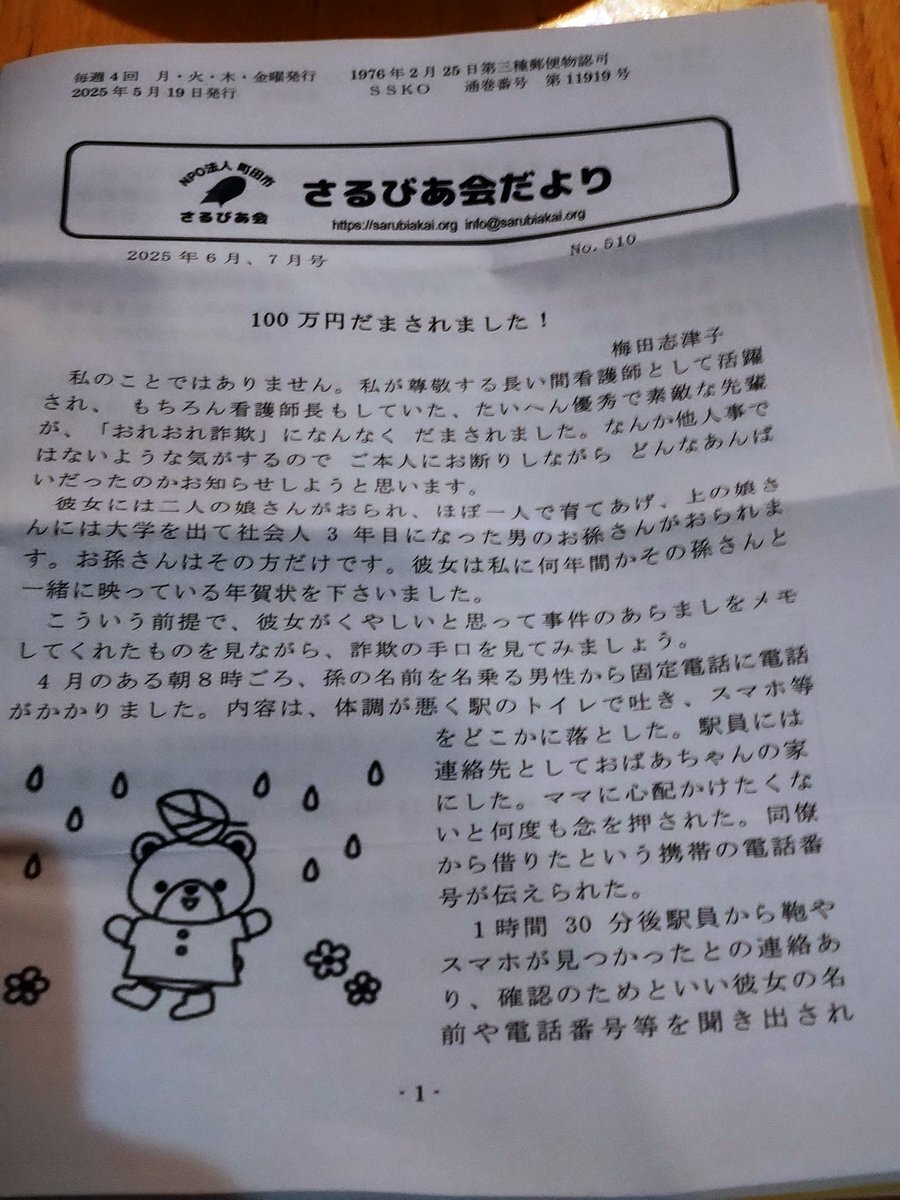 毎週4回 月・火・木・金曜発行 1976年2月25日第三種郵便物認可
2025年5月19日発行 SSKO 通巻番号 第11919号
NPO法人 町田市
さるびあ会
さるびあ会だより
https://sarubiakai.org info@sarubiakai.org
2025年6月、7月号 No.510
100万円だまされました!
梅田志津子
私のことではありません。私が尊敬する長い間看護師として活躍
され、 もちろん看護師長もしていた、たいへん優秀で素敵な先輩
が、「おれおれ詐欺」になんなく だまされました。なんか他人事で
はないような気がするので ご本人にお断りしながら どんなあんば
いだったのかお知らせしようと思います。
彼女には二人の娘さんがおられ、ほぼ一人で育てあげ、上の娘さ
んには大学を出て社会人3年目になった男のお孫さんがおられま
す。お孫さんはその方だけです。彼女は私に何年間かその孫さんと
一緒に映っている年賀状を下さいました。
こういう前提で、彼女がくやしいと思って事件のあらましをメモ
してくれたものを見ながら、詐欺の手口を見てみましょう。
4月のある朝8時ごろ、孫の名前を名乗る男性から固定電話に電話
がかかりました。内容は、体調が悪く駅のトイレで吐き、スマホ等
をどこかに落とした。駅員には
連絡先としておばあちゃんの家
にした。ママに心配かけたくな
いと何度も念を押された。同僚
から借りたという携帯の電話番
号が伝えられた。
1時間30分後駅員から鞄や
スマホが見つかったとの連絡あ
り、確認のためといい彼女の名
前や電話番号等を聞き出され
- 1 -